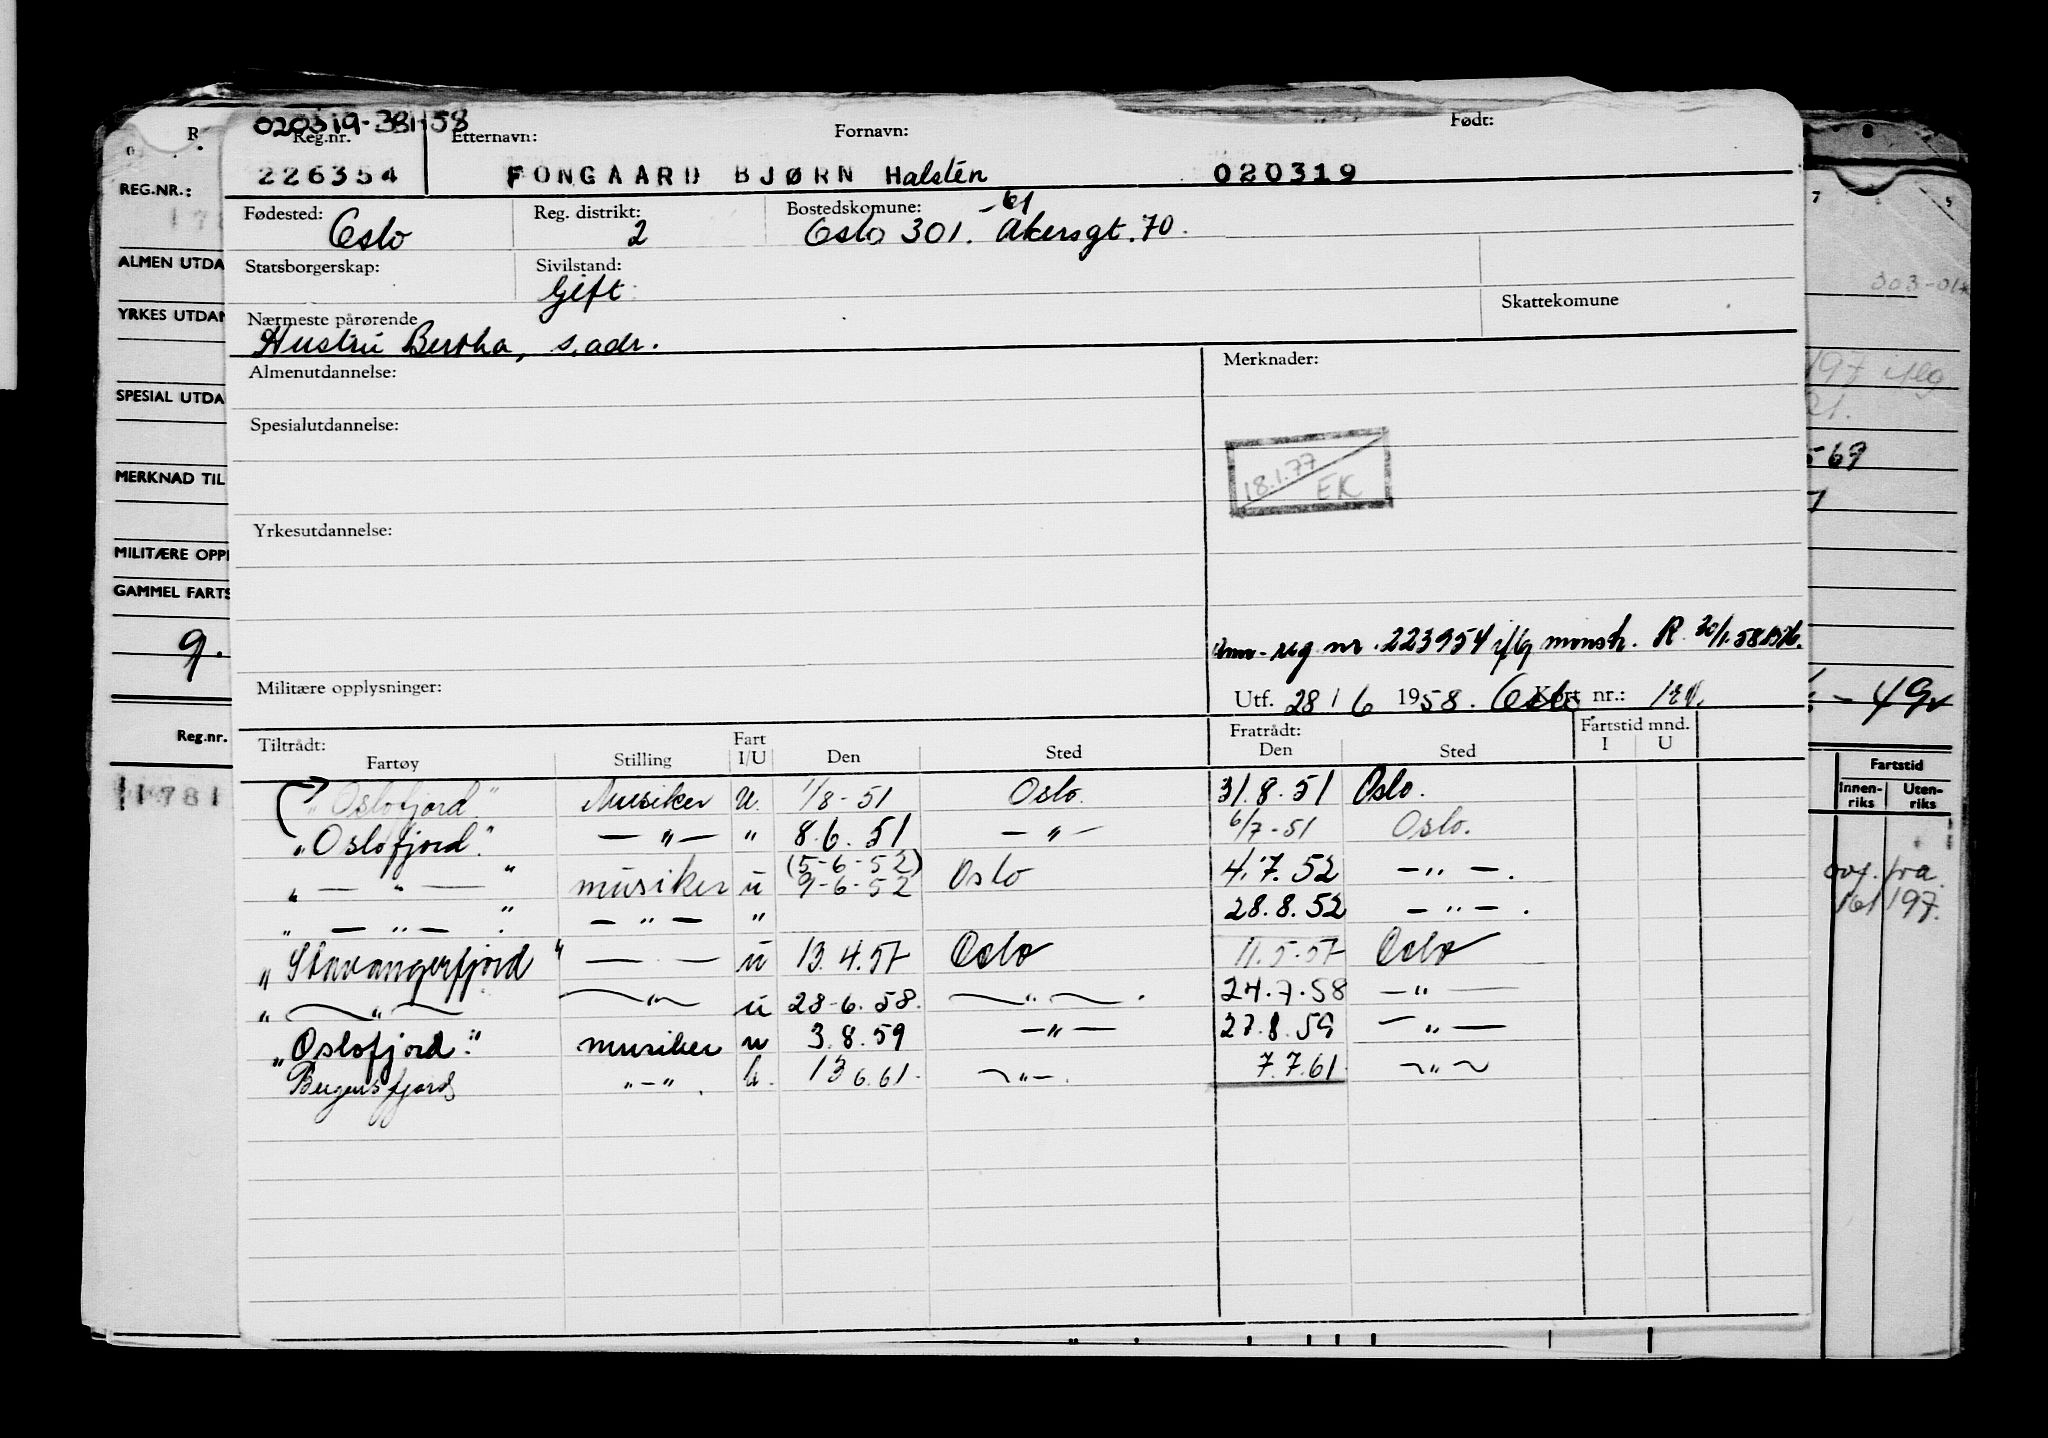 020319-381-58
Reg.nr. Etternavn: Fornavn: Født:
226354 FONGAARD BJØRN Halsten 020319
Fødested: Reg. distrikt: Bostedskomune: -61
Oslo 2 Oslo 301. Akersgt. 70.
Statsborgerskap: Sivilstand:
Gift
Nærmeste pårørende Skattekomune
Hustru Bertha, s. adr.
Almenutdannelse: Merknader:
Spesialutdannelse:
18.1.77
EK
Yrkesutdannelse:
reg nr. 223954 i/flg mønstr. R. 30/1.58
Militære opplysninger: Utf. 28 / 6 1958. Oslo Kort nr.:
Tiltrådt: Fratrådt: Fartstid mnd.
Fartøy Stilling Fart I/U Den Sted Den Sted I U
"Oslofjord" Musiker U. 1/8-51 Oslo. 31.8.51 Oslo.
"Oslofjord." — " — " 8.6.51 — " — 6/7-51 Oslo.
(5-6-52)
" — " — " musiker u 9-6-52 Oslo 4.7.52 — " — .
" — " — " — " — " 28.8.52 — " — .
"Stavangerfjord" — " — u 13.4.57 Oslo 11.5.57 Oslo
" — " — — " — u 28-6.58. — " — . 24.7.58 — " —
"Oslofjord." musiker u 3.8.59 — " — 27.8.59 — " —
Bergensfjord " — " . U. 13.6.61. — " — . 7.7.61. — " —
REG.NR.:
ALMEN UTDA
YRKES UTDAN
SPESIAL UTDA
MERKNAD TIL
MILITÆRE OPPL
GAMMEL FARTS
9.
Reg.nr.
1781
303-01
197 iflg
21.
569
- 49
Fartstid
Innen-riks Uten-riks
ovf. fra
161 197.